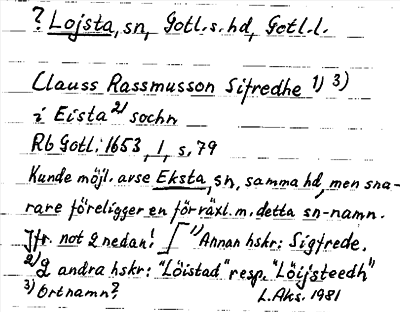 ? Lojsta, sn, Gotl.s.hd, Gotl.l.
Clauss Rassmusson Sifredhe 1) 3)
i Eista 2) sochn
Rb Gotl; 1653, 1, s. 79
Kunde möjl. avse Eksta, sn, samma hd, men sna-
rare föreligger en förväxl. m. detta sn-namn.
Jfr. not 2 nedan! 1) Annan hskr: Sigfrede.
2) 2 andra hskr: "Löistad" resp. "Löijsteedh"
3) Ortnamn? L. Aks. 1981